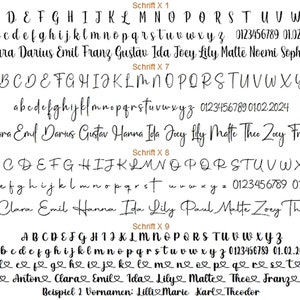 Schrift X 1
D E F G H I J K L M N O P Q R S T U V W
b c d e f g h i j k l m n o p q r s t u v w x y z 0123456789 01.02
ara Darius Emil Franz Gustav Ida Joey Lily Malte Noemi Soph
Schrift X 7
B C D E F G H I J K L M N O P Q R S T U V W X Y
a b c d e f g h i j k l m n o p q r s t u v w x y z 0123456789 01.02.2024
ara Emil Darius Gustav Hanna Ida Joey Lily Malte Theo Zoey Fr
Schrift X 8
C D E F G H I J K L M N O P Q R S T U V W X
e f g h i j k l m n o p q r s t u v w x y z 0123456789 01
Clara Emil Hanna Ida Lily Paul Malte Zoey Th
Schrift X 9
A B C D E F G H I J K L M N O P Q R S T U V W X Y Z
b c d e f g h i j k l m n o p q r s t u v w x y z 0123456789 01.02
d e f g h i j k l m n o p q r s t
Anton Clara Emil Ida Lily Malte Theo Franz
Beispiel 2 Vornamen: Lilli Marie Karl Theodor